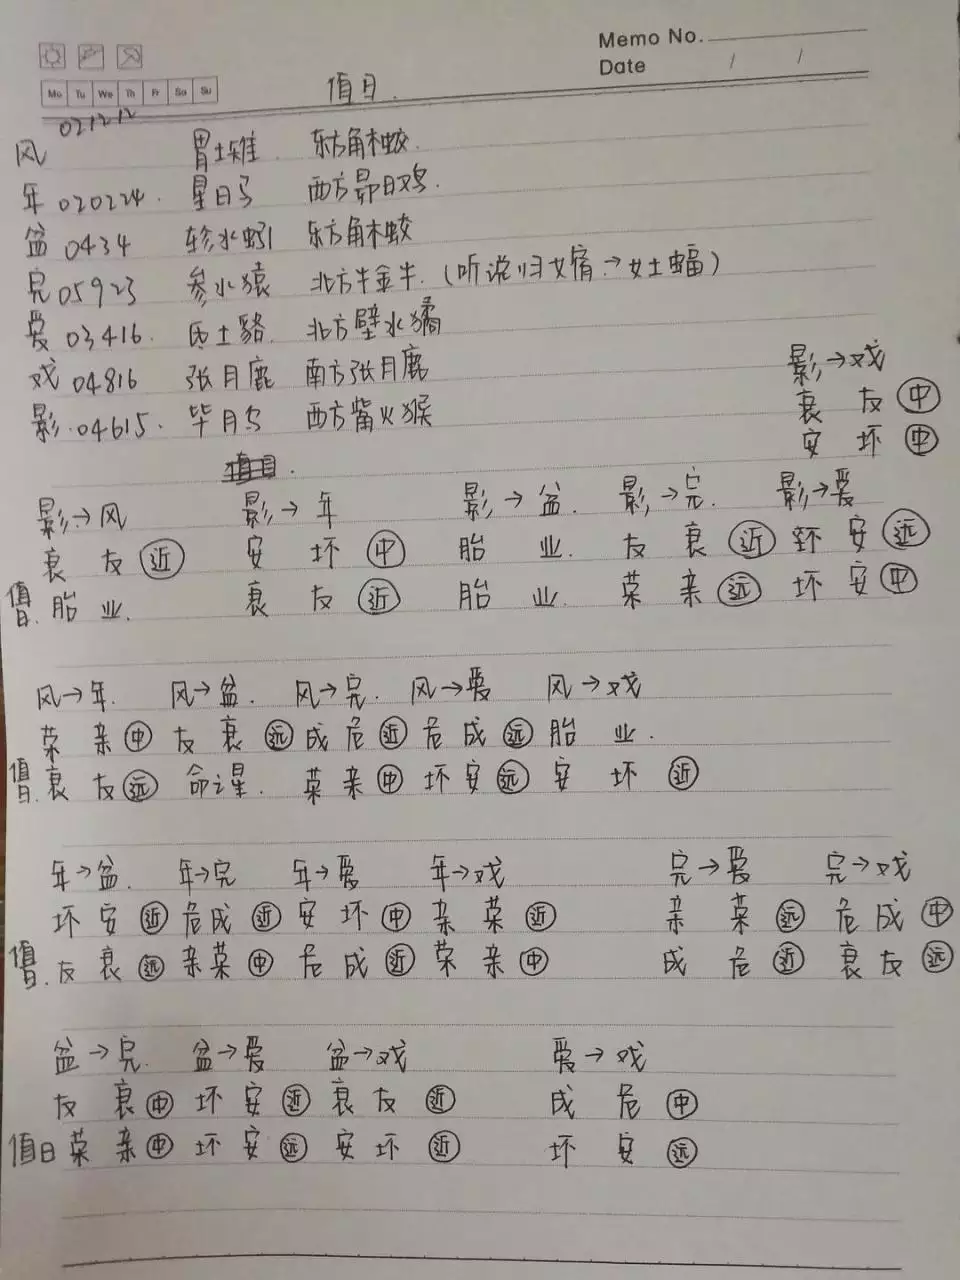 Memo No.
Date / /
Mo Tu We Th Fr Sa Su
值日.
021212
风 胃土雉 东方角木蛟.
年 020224. 星日马 西方昴日鸡.
盆 0434 轸水蚓 东方角木蛟
完 05923 参水猿 北方牛金牛.(听说归女宿→女土蝠)
爱 03416. 氐土貉. 北方壁水獝
戏 04816 张月鹿 南方张月鹿
影.04615. 毕月乌 西方觜火猴
影→戏
衰 友 中
安 坏 中
影→风 影→年 影→盆. 影→完. 影→爱
衰 友 近 安 坏 中 胎 业. 友 衰 近 坏 安 远
值日. 胎 业. 衰 友 近 胎 业. 荣 亲 远 坏 安 中
风→年. 风→盆. 风→完. 风→爱 风→戏
荣 亲 中 友 衰 远 成 危 近 危 成 远 胎 业.
值日. 衰 友 远 命之星. 荣 亲 中 坏 安 远 安 坏 近
年→盆. 年→完 年→爱 年→戏 完→爱 完→戏
坏 安 近 危成 近 安 坏 中 亲 荣 近 亲 荣 远 危 成 中
值日. 友 衰 远 亲荣 中 危 成 近 荣 亲 中 成 危 近 衰 友 远
盆→完. 盆→爱 盆→戏 爱→戏
友 衰 中 坏 安 近 衰 友 近 成 危 中
值日 荣 亲 中 坏 安 远 安 坏 近 坏 安 远